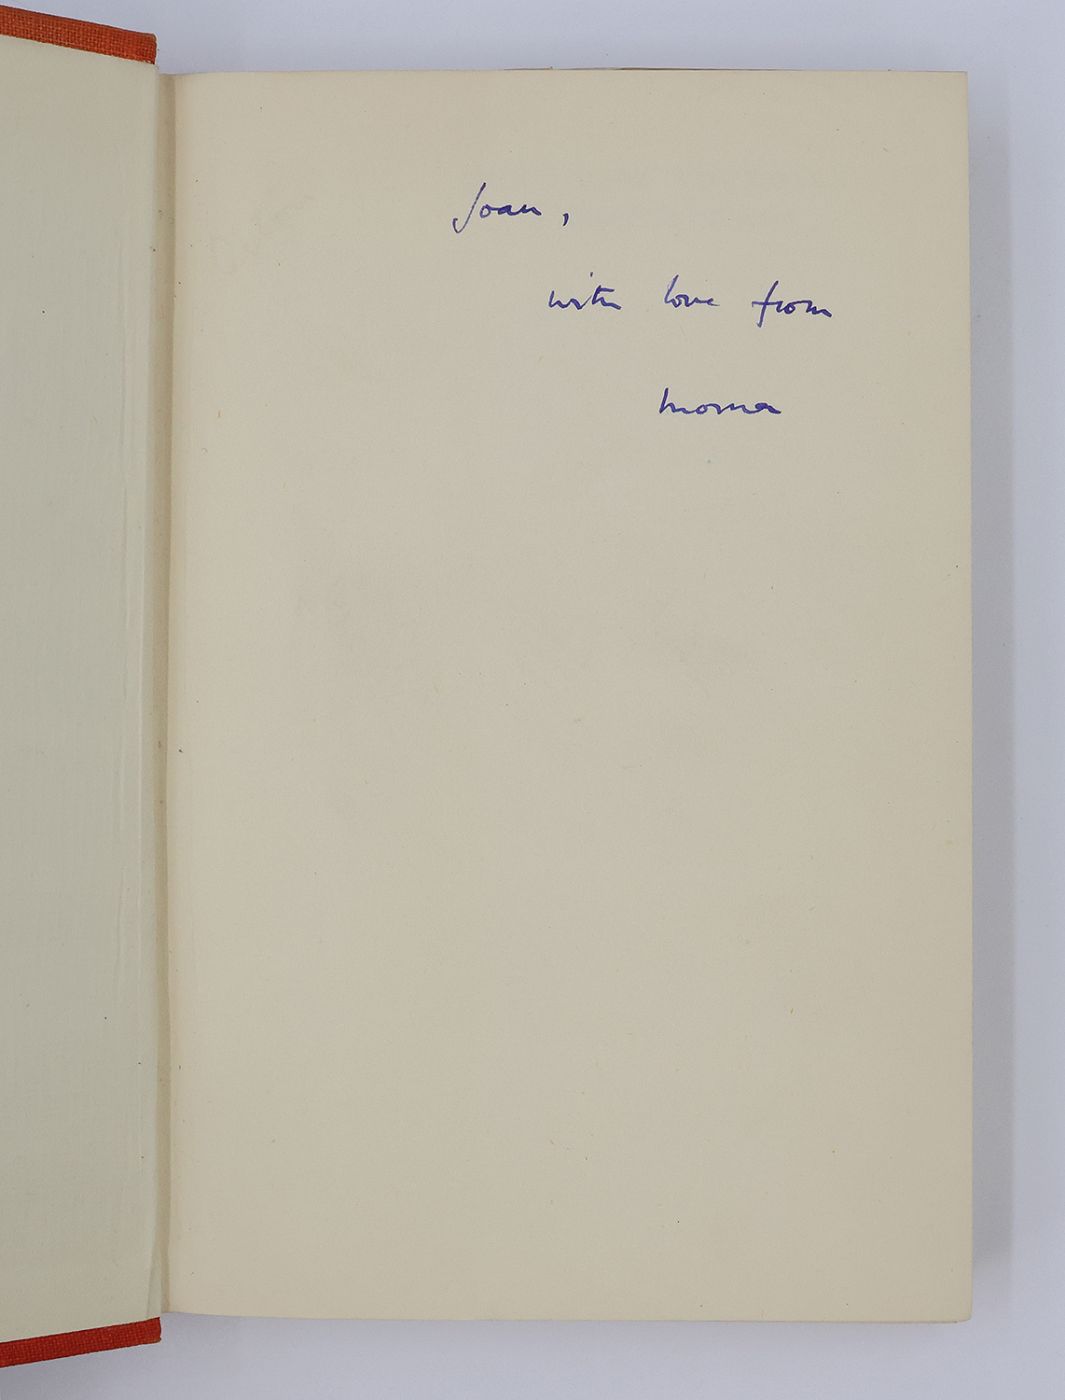 Joan,
with love from
Morna